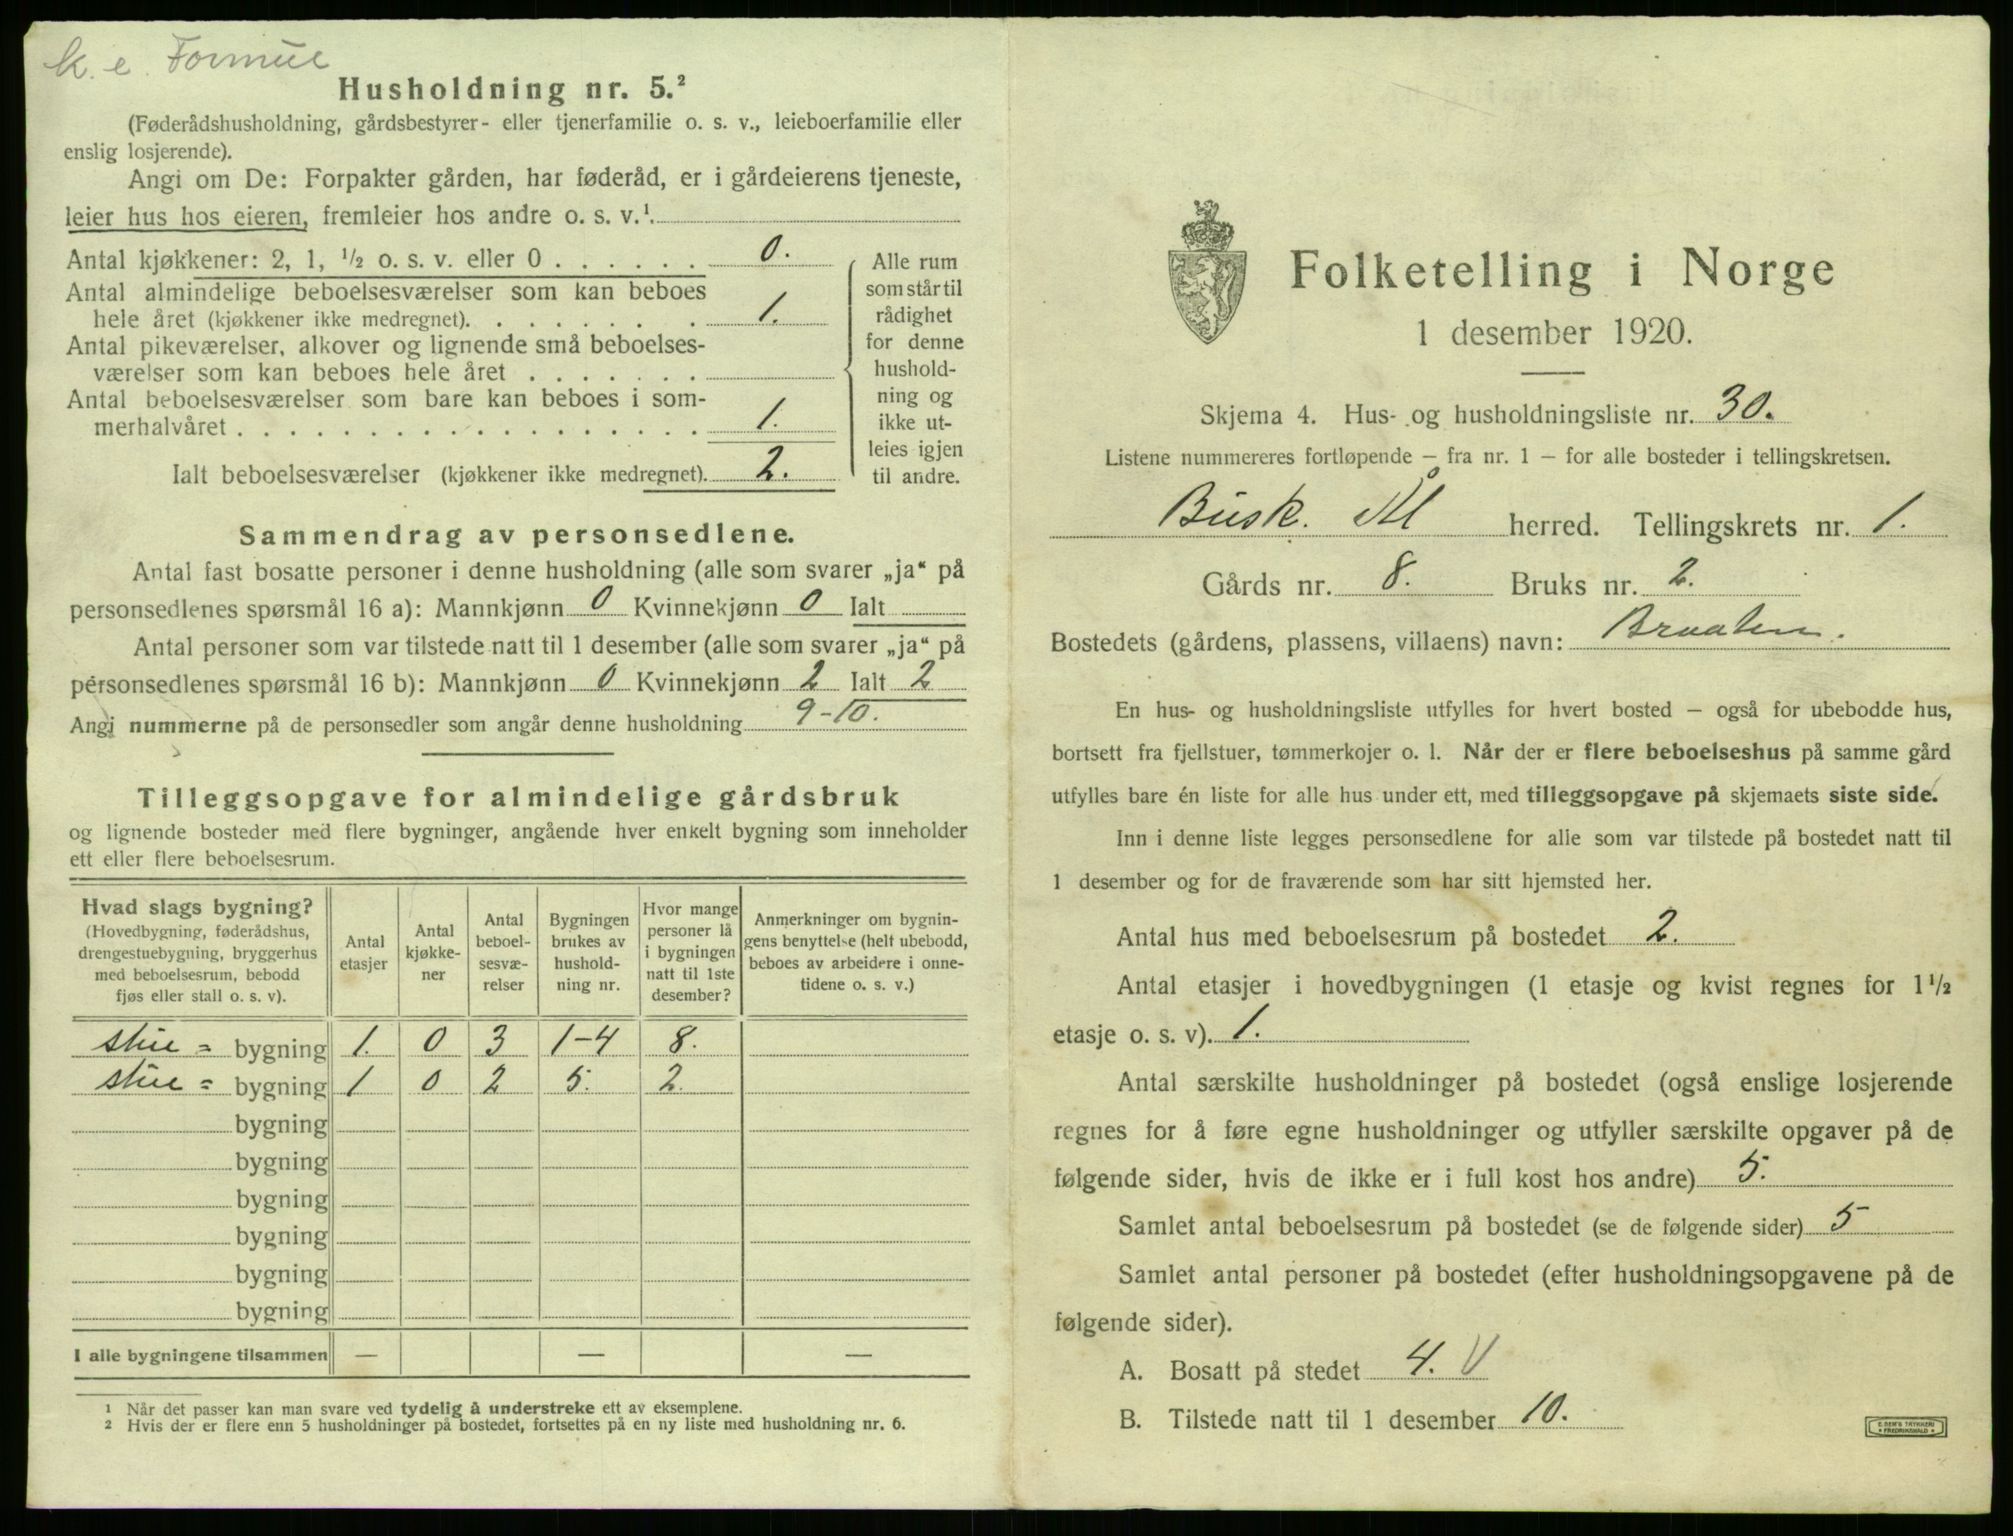 k. e. Formue
Husholdning nr. 5.²
(Føderådshusholdning, gårdsbestyrer- eller tjenerfamilie o. s. v., leieboerfamilie eller
enslig losjerende).
Angi om De: Forpakter gården, har føderåd, er i gårdeierens tjeneste,
leier hus hos eieren, fremleier hos andre o. s. v.¹.
Antal kjøkkener: 2, 1, ½ o. s. v. eller 0 . . . . . . 0.
Antal almindelige beboelsesværelser som kan beboes
hele året (kjøkkener ikke medregnet). . . . . . . . . 1.
Antal pikeværelser, alkover og lignende små beboelses-
værelser som kan beboes hele året . . . . . . .
Antal beboelsesværelser som bare kan beboes i som-
merhalvåret . . . . . . . . . . . . . . . . . . 1.
Ialt beboelsesværelser (kjøkkener ikke medregnet). 2.
Alle rum
som står til
rådighet
for denne
hushold-
ning og
ikke ut-
leies igjen
til andre.
Sammendrag av personsedlene.
Antal fast bosatte personer i denne husholdning (alle som svarer „ja“ på
personsedlenes spørsmål 16 a): Mannkjønn 0 Kvinnekjønn 0 Ialt
Antal personer som var tilstede natt til 1 desember (alle som svarer „ja“ på
personsedlenes spørsmål 16 b): Mannkjønn 0 Kvinnekjønn 2 Ialt 2
Angi nummerne på de personsedler som angår denne husholdning 9-10.
Tilleggsopgave for almindelige gårdsbruk
og lignende bosteder med flere bygninger, angående hver enkelt bygning som inneholder
ett eller flere beboelsesrum.
Hvad slags bygning?
(Hovedbygning, føderådshus,
drengestuebygning, bryggerhus
med beboelsesrum, bebodd
fjøs eller stall o. s. v).
Antal
etasjer
Antal
kjøkke-
ner
Antal
beboel-
sesvæ-
relser
Bygningen
brukes av
hushold-
ning nr.
Hvor mange
personer lå
i bygningen
natt til 1ste
desember?
Anmerkninger om bygnin-
gens benyttelse (helt ubebodd,
beboes av arbeidere i onne-
tidene o. s. v.)
stue = bygning 1. 0 3 1-4 8.
stue = bygning 1 0 2 5. 2.
bygning
bygning
bygning
bygning
bygning
bygning
I alle bygningene tilsammen — — —
1 Når det passer kan man svare ved tydelig å understreke ett av eksemplene.
2 Hvis der er flere enn 5 husholdninger på bostedet, fortsettes på en ny liste med husholdning nr. 6.
Folketelling i Norge
1 desember 1920.
Skjema 4. Hus- og husholdningsliste nr. 30.
Listene nummereres fortløpende – fra nr. 1 – for alle bosteder i tellingskretsen.
Busk. Ål herred. Tellingskrets nr. 1.
Gårds nr. 8. Bruks nr. 2.
Bostedets (gårdens, plassens, villaens) navn: Braaten.
En hus- og husholdningsliste utfylles for hvert bosted – også for ubebodde hus,
bortsett fra fjellstuer, tømmerkojer o. l. Når der er flere beboelseshus på samme gård
utfylles bare én liste for alle hus under ett, med tilleggsopgave på skjemaets siste side.
Inn i denne liste legges personsedlene for alle som var tilstede på bostedet natt til
1 desember og for de fraværende som har sitt hjemsted her.
Antal hus med beboelsesrum på bostedet 2.
Antal etasjer i hovedbygningen (1 etasje og kvist regnes for 1½
etasje o. s. v). 1.
Antal særskilte husholdninger på bostedet (også enslige losjerende
regnes for å føre egne husholdninger og utfyller særskilte opgaver på de
følgende sider, hvis de ikke er i full kost hos andre) 5.
Samlet antal beboelsesrum på bostedet (se de følgende sider) 5
Samlet antal personer på bostedet (efter husholdningsopgavene på de
følgende sider).
A. Bosatt på stedet 4. V
B. Tilstede natt til 1 desember 10.
E. SEM'S TRYKKERI
FREDRIKSHALD